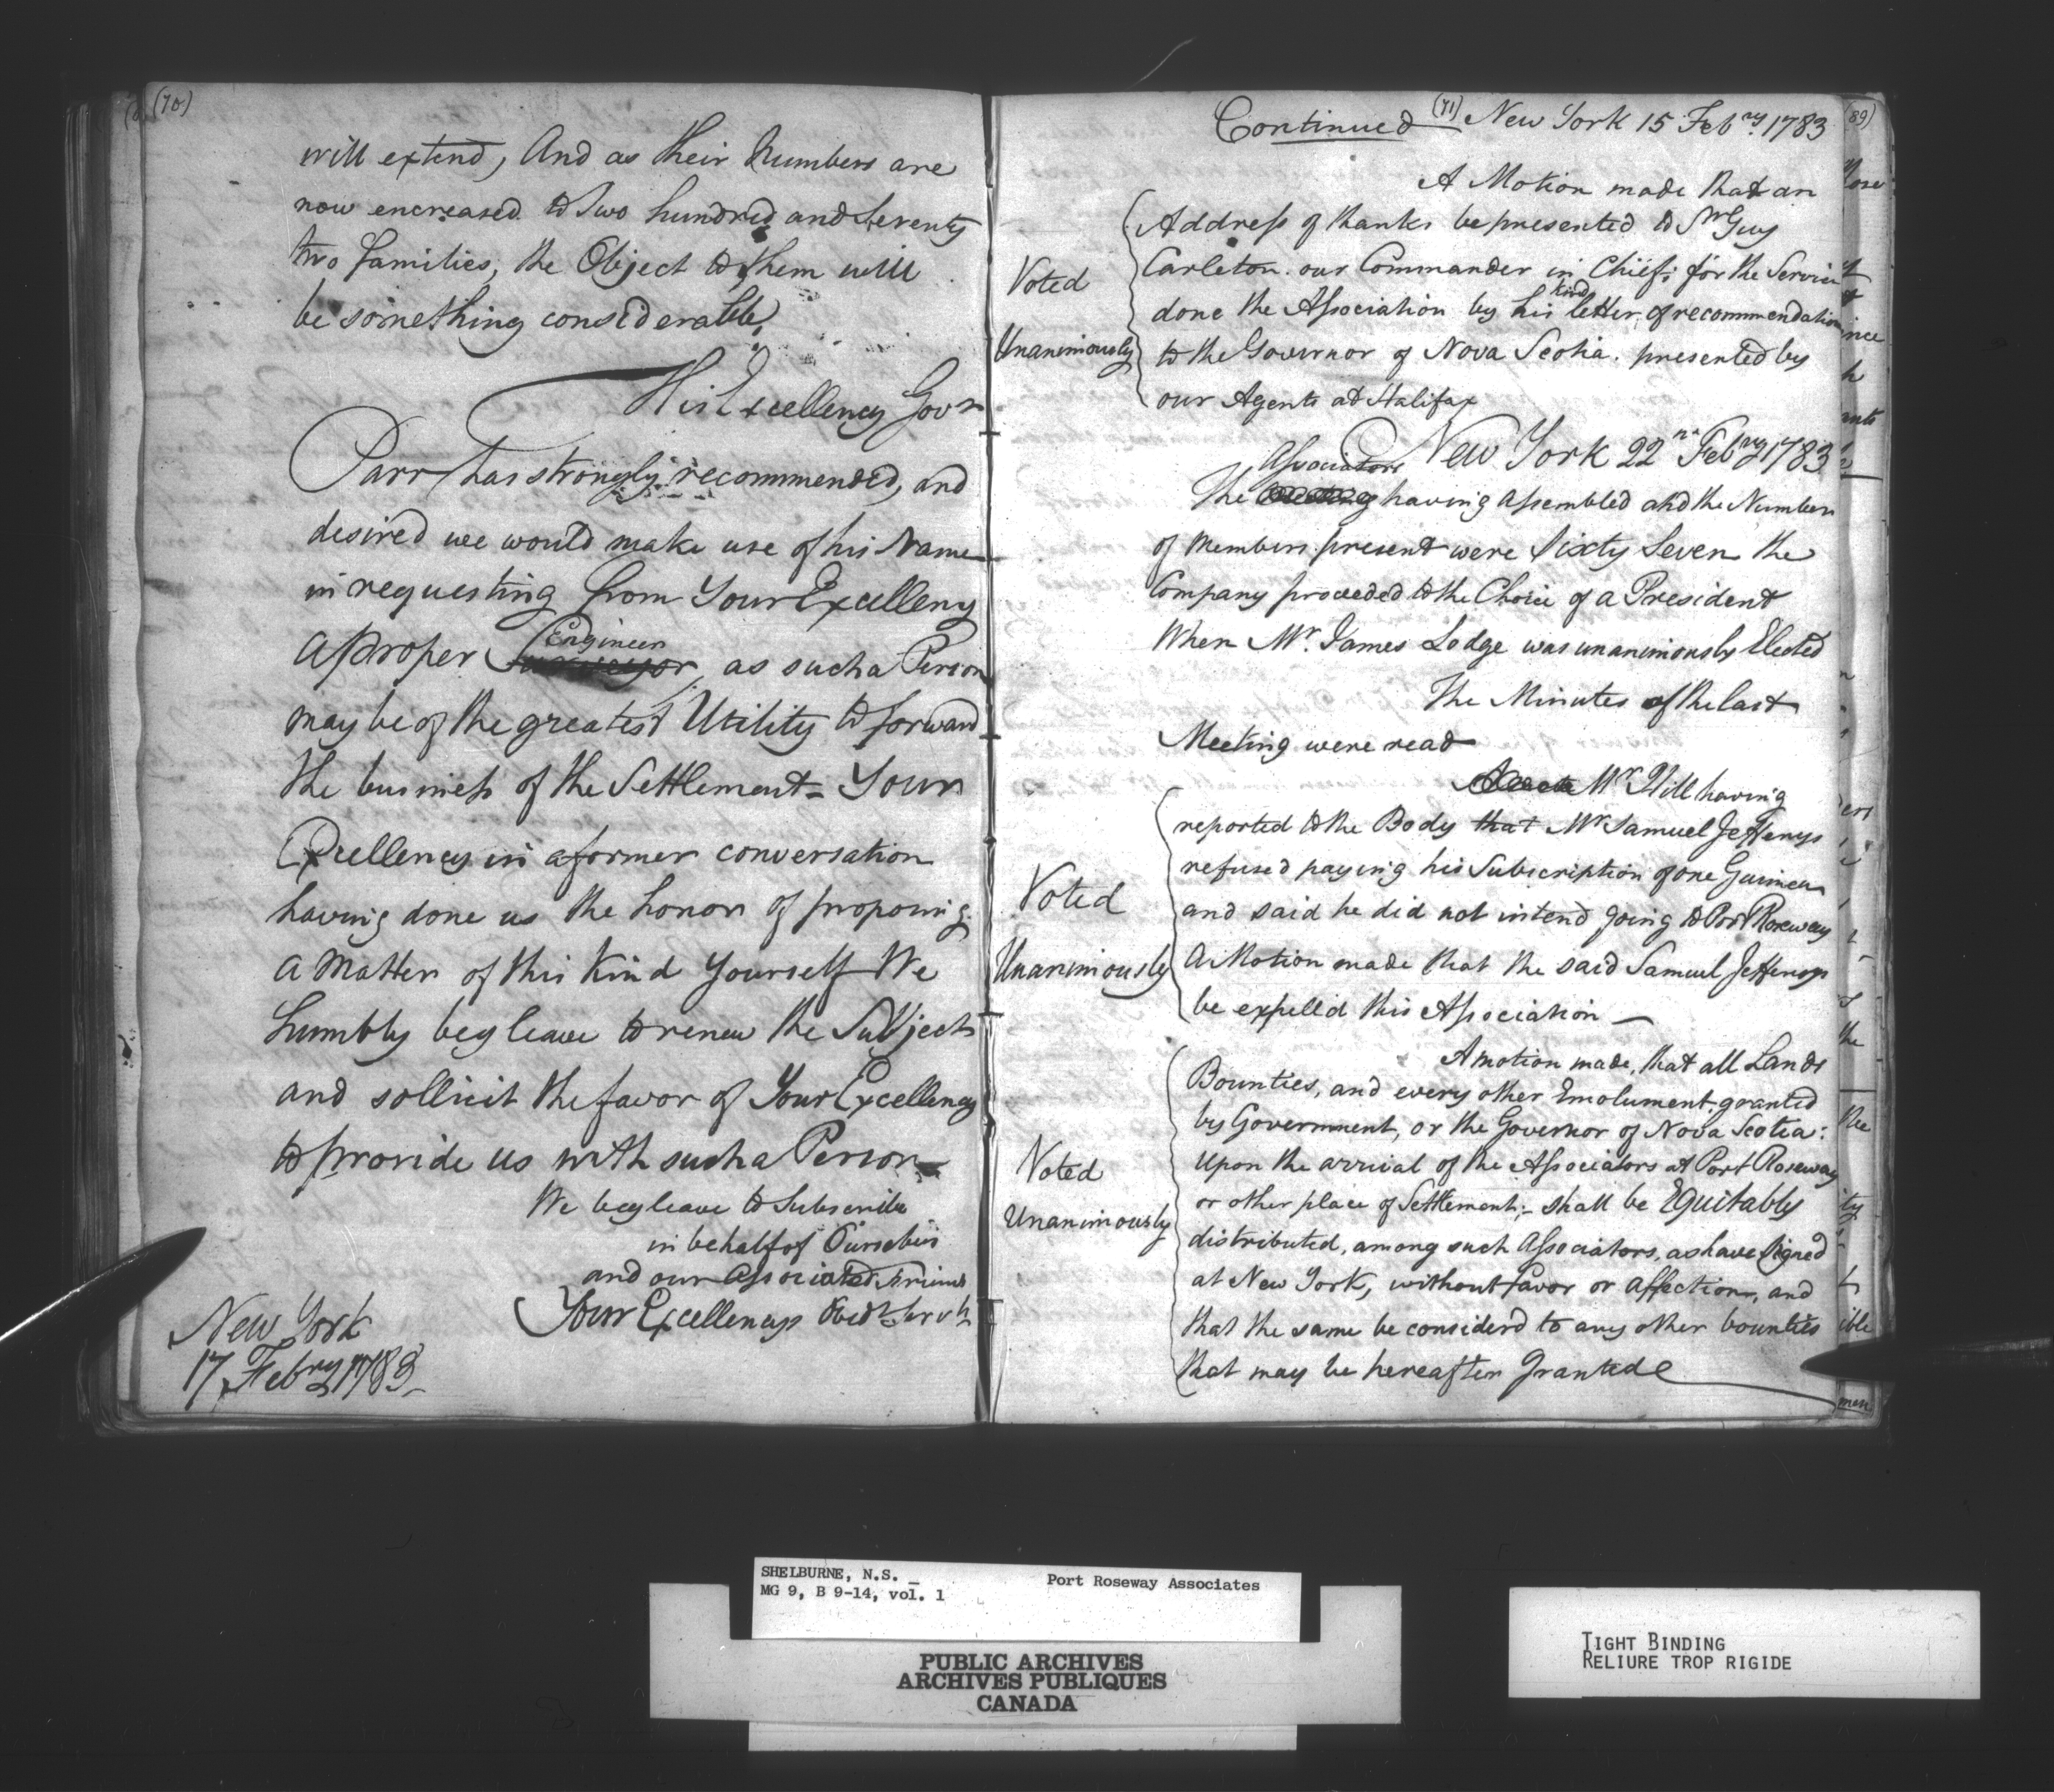 (70)
will extend, And as their Numbers are
now encreased to Two hundred and Seventy
two families, the Object to them will
be something considerable,
His Excellency Govr
Parr has strongly recommended, and
desired we would make use of his Name
in requesting from Your Excelleny
a proper Surveyor Engineer, as such a Person
may be of the greatest Utility to forward
the business of the Settlement - Your
Excellency in a former conversation
having done us the honor of proposing
a Matter of this Kind Yourself We
humbly beg leave to renew the Subject
and sollicit the favor of Your Excellency
to provide us with such a Person
We beg leave to Subscribe
in behalf of Ourselves
and our Associated Friends
Your Excellencys Obedt Servts
New York
17 Febry 1783
(71)
Continued New York 15 Febry 1783
A Motion made that an
Address of thanks be presented to Sr Guy
Carleton our Commander in Chief; for the Service
done the Association by his kind letter of recommendation
to the Governor of Nova Scotia. presented by
our Agents at Halifax
Voted
Unanimously
New York 22nd Febry 1783
The Associators having assembled and the Number
of Members present were Sixty Seven the
Company proceeded to the Choice of a President
When Mr. James Lodge was unanimously Elected
The Minutes of the last
Meeting were read
Mr Hill having
reported to the Body that Mr Samuel Jefferys
refused paying his Subscription of one Guinea
and said he did not intend going to Port Roseway
A Motion made that the said Samuel Jefferys
be expelld this Association
Voted
Unanimously
A motion made, that all Lands
Bounties, and every other Emolument granted
by Government, or the Governor of Nova Scotia:
Upon the arrival of the Associators at Port Roseway
or other place of Settlement; - shall be Equitably
distributed, among such Associators, as have signed
at New York, without favor or affection, and
that the same be considerd to any other bounties
that may be hereafter Granted
Voted
Unanimously
(89)
SHELBURNE, N.S. _
MG 9, B 9-14, vol. 1
Port Roseway Associates
PUBLIC ARCHIVES
ARCHIVES PUBLIQUES
CANADA
TIGHT BINDING
RELIURE TROP RIGIDE